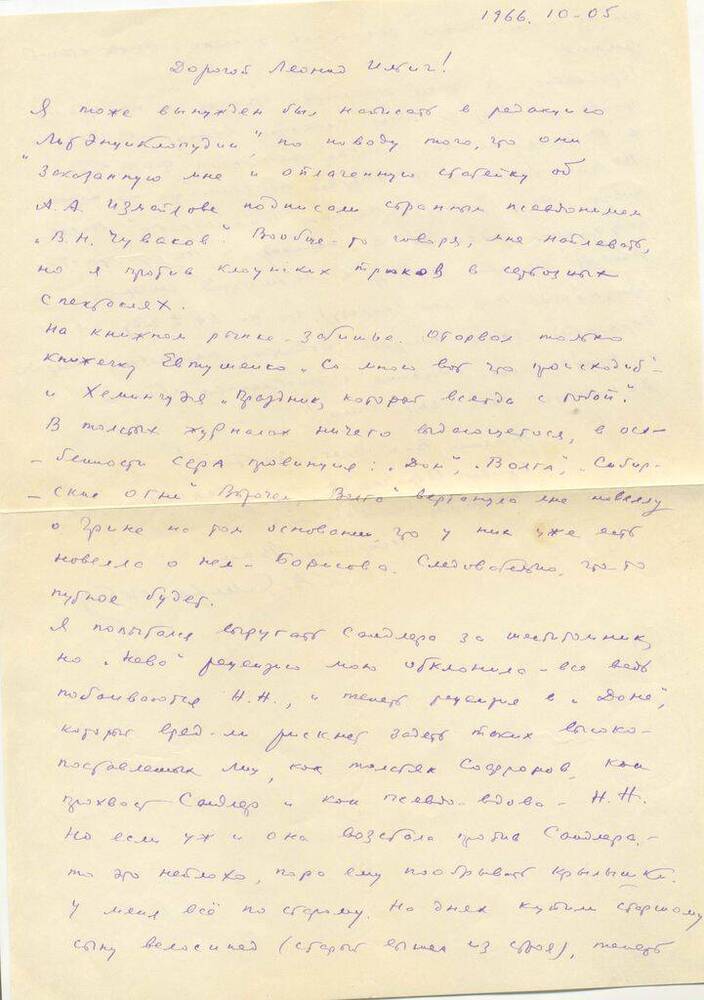 1966. 10-05
Дорогой Леонид Ильич!
Я тоже вынужден был написать в редакцию
"Литэнциклопедии", по поводу того, что они
заказанную мне и оплаченную статейку об
А.А. Измайлове подписали странным псевдонимом
„В.Н. Чуваков". Вообще-то говоря, мне наплевать,
но я против клоунских трюков в серьозных
спектаклях.
На книжном рынке - затишье. Оторвал только
книжечку Евтушенко „Со мною вот что происходит"-
и Хемингуэя „Праздник, который всегда с тобой".
В толстых журналах ничего выдающегося, в осо-
-бенности сера провинция: „Дон", „Волга", „Сибир-
-ские огни". Впрочем, „Волга" вернула мне новеллу
о Грине на том основании, что у них уже есть
новелла о нем - Борисова. Следовательно, что-то
путное будет.
Я попытался выругать Сандлера за шеститомник,
но „Нева" рецензию мою отклонила - все ведь
побаиваются Н.Н., и теперь рецензия в „Доне",
который вряд-ли рискнет задеть таких высоко-
поставленных лиц, как толстяк Софронов, как
прохвост Сандлер и как псевдо-вдова - Н.Н.
Но если уж и она возстала против Сандлера, -
то это неплохо, пора ему пообрывать крылышки.
У меня всё по старому. На днях купили старшому
сыну велосипед (старый вышел из строя), теперь